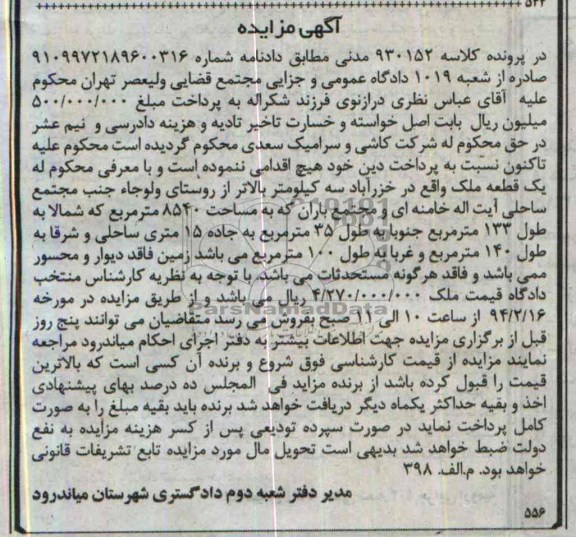 ۵۲۲
آگهی مزایده
در پرونده کلاسه ۹۳۰۱۵۲ مدنی مطابق دادنامه شماره ۹۱۰۹۹۷۲۱۸۹۶۰۰۳۱۶
صادره از شعبه ۱۰۱۹ دادگاه عمومی و جزایی مجتمع قضایی ولیعصر تهران محکوم
علیه آقای عباس نظری درازنوی فرزند شکراله به پرداخت مبلغ ۵۰۰/۰۰۰/۰۰۰
میلیون ریال بابت اصل خواسته و خسارت تاخیر تادیه و هزینه دادرسی و نیم عشر
در حق محکوم له شرکت کاشی و سرامیک سعدی محکوم گردیده است محکوم علیه
تاکنون نسبت به پرداخت دین خود هیچ اقدامی ننموده است و با معرفی محکوم له
یک قطعه ملک واقع در خزرآباد سه کیلومتر بالاتر از روستای ولوجاء جنب مجتمع
ساحلی آیت اله خامنه ای و مجتمع باران که به مساحت ۸۵۴۰ مترمربع که شمالا به
طول ۱۳۳ مترمربع جنوبا به طول ۳۵ مترمربع به جاده ۱۵ متری ساحلی و شرقا به
طول ۱۴۰ مترمربع و غربا به طول ۱۰۰ مترمربع می باشد زمین فاقد دیوار و محسور
ممی باشد و فاقد هرگونه مستحدثات می باشد. با توجه به نظریه کارشناس منتخب
دادگاه قیمت ملک ۴/۲۷۰/۰۰۰/۰۰۰ ریال می باشد و از طریق مزایده در مورخه
۹۴/۲/۱۶ از ساعت ۱۰ الی ۱۱ صبح بفروش می رسد متقاضیان می توانند پنج روز
قبل از برگزاری مزایده جهت اطلاعات بیشتر به دفتر اجرای احکام میاندرود مراجعه
نمایند مزایده از قیمت کارشناسی فوق شروع و برنده آن کسی است که بالاترین
قیمت را قبول کرده باشد از برنده مزاید فی المجلس ده درصد بهای پیشنهادی
اخذ و بقیه حداکثر یکماه دیگر دریافت خواهد شد برنده باید بقیه مبلغ را به صورت
کامل پرداخت نماید در صورت سپرده تودیعی پس از کسر هزینه مزایده به نفع
دولت ضبط خواهد شد بدیهی است تحویل مال مورد مزایده تابع تشریفات قانونی
خواهد بود. م.الف. ۳۹۸
مدیر دفتر شعبه دوم دادگستری شهرستان میاندرود
۵۵۶
ParsNamadData